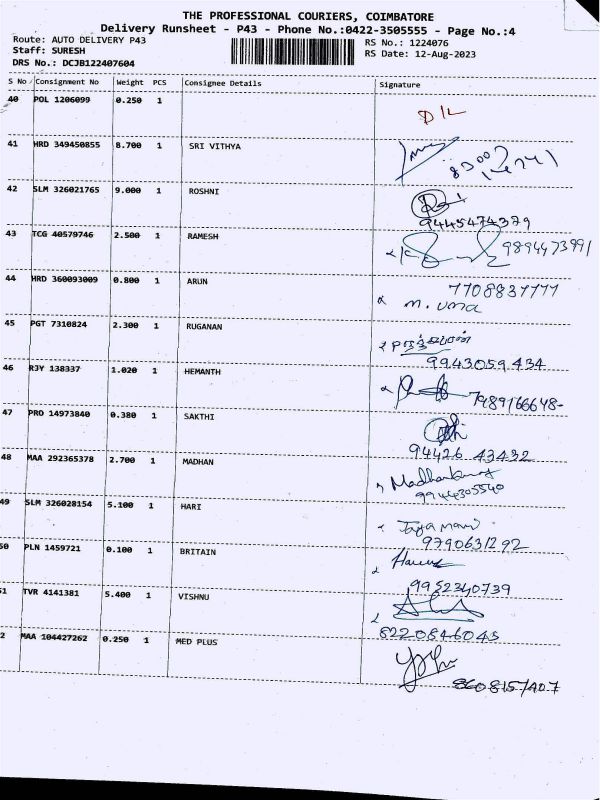 THE PROFESSIONAL COURIERS, COIMBATORE
Delivery Runsheet - P43 - Phone No.:0422-3505555 - Page No.:4
Route: AUTO DELIVERY P43
RS No.: 1224076
Staff: SURESH
RS Date: 12-Aug-2023
DRS No.: DCJB122407604
S No Consignment No Weight PCS Consignee Details Signature
40 POL 1206099 0.250 1
D/L
41 HRD 349450855 8.700 1 SRI VITHYA
42 SLM 326021765 9.000 1 ROSHNI
9445474379
43 TCG 40579746 2.500 1 RAMESH
9894473991
44 HRD 360093009 0.800 1 ARUN
7708837777
M. UMA
45 PGT 7310824 2.300 1 RUGANAN
9943059434
46 RJY 138337 1.020 1 HEMANTH
7989166648-
47 PRD 14973840 0.380 1 SAKTHI
94426 43432
48 MAA 292365378 2.700 1 MADHAN
Madhankumar
9944305540
49 SLM 326028154 5.100 1 HARI
Jayamani
9790631292
50 PLN 1459721 0.100 1 BRITAIN
9952340739
51 TVR 4141381 5.400 1 VISHNU
8220846045
2 MAA 104427262 0.250 1 MED PLUS
8608157407